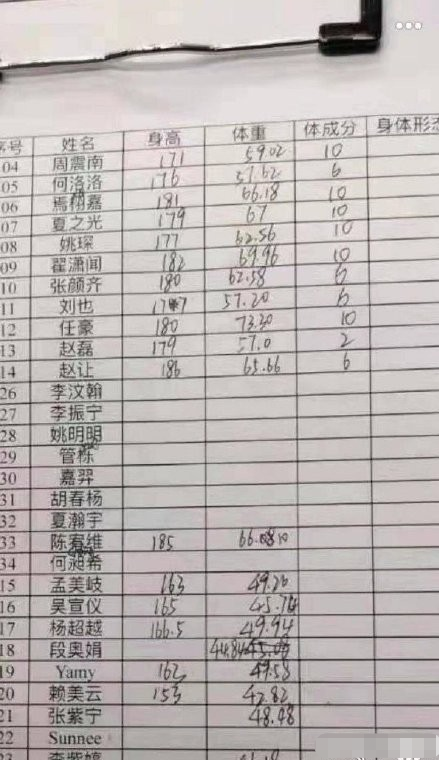 序号 姓名 身高 体重 体成分 身体形态
04 周震南 171 59.02 10
05 何洛洛 176 57.62 6
06 焉栩嘉 181 66.18 10
07 夏之光 179 67 10
08 姚琛 177 62.56 10
09 翟潇闻 182 69.96 10
10 张颜齐 180 62.58 6
11 刘也 177 57.20 6
12 任豪 180 73.30 10
13 赵磊 179 57.0 2
14 赵让 186 65.66 6
26 李汶翰
27 李振宁
28 姚明明
29 管栎
30 嘉羿
31 胡春杨
32 夏瀚宇
33 陈宥维 185 66.08 10
34 何昶希
15 孟美岐 163 49.20
16 吴宣仪 165 45.74
17 杨超越 166.5 49.94
18 段奥娟 44.84
19 Yamy 162 49.58
20 赖美云 153 42.82
21 张紫宁 48.48
22 Sunnee
23 李紫婷